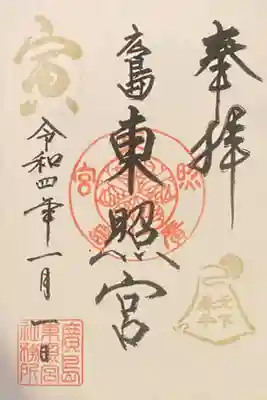 奉拝
廣島東照宮
令和四年一月一日
寅
天下泰平
廣島
東照宮
社務所